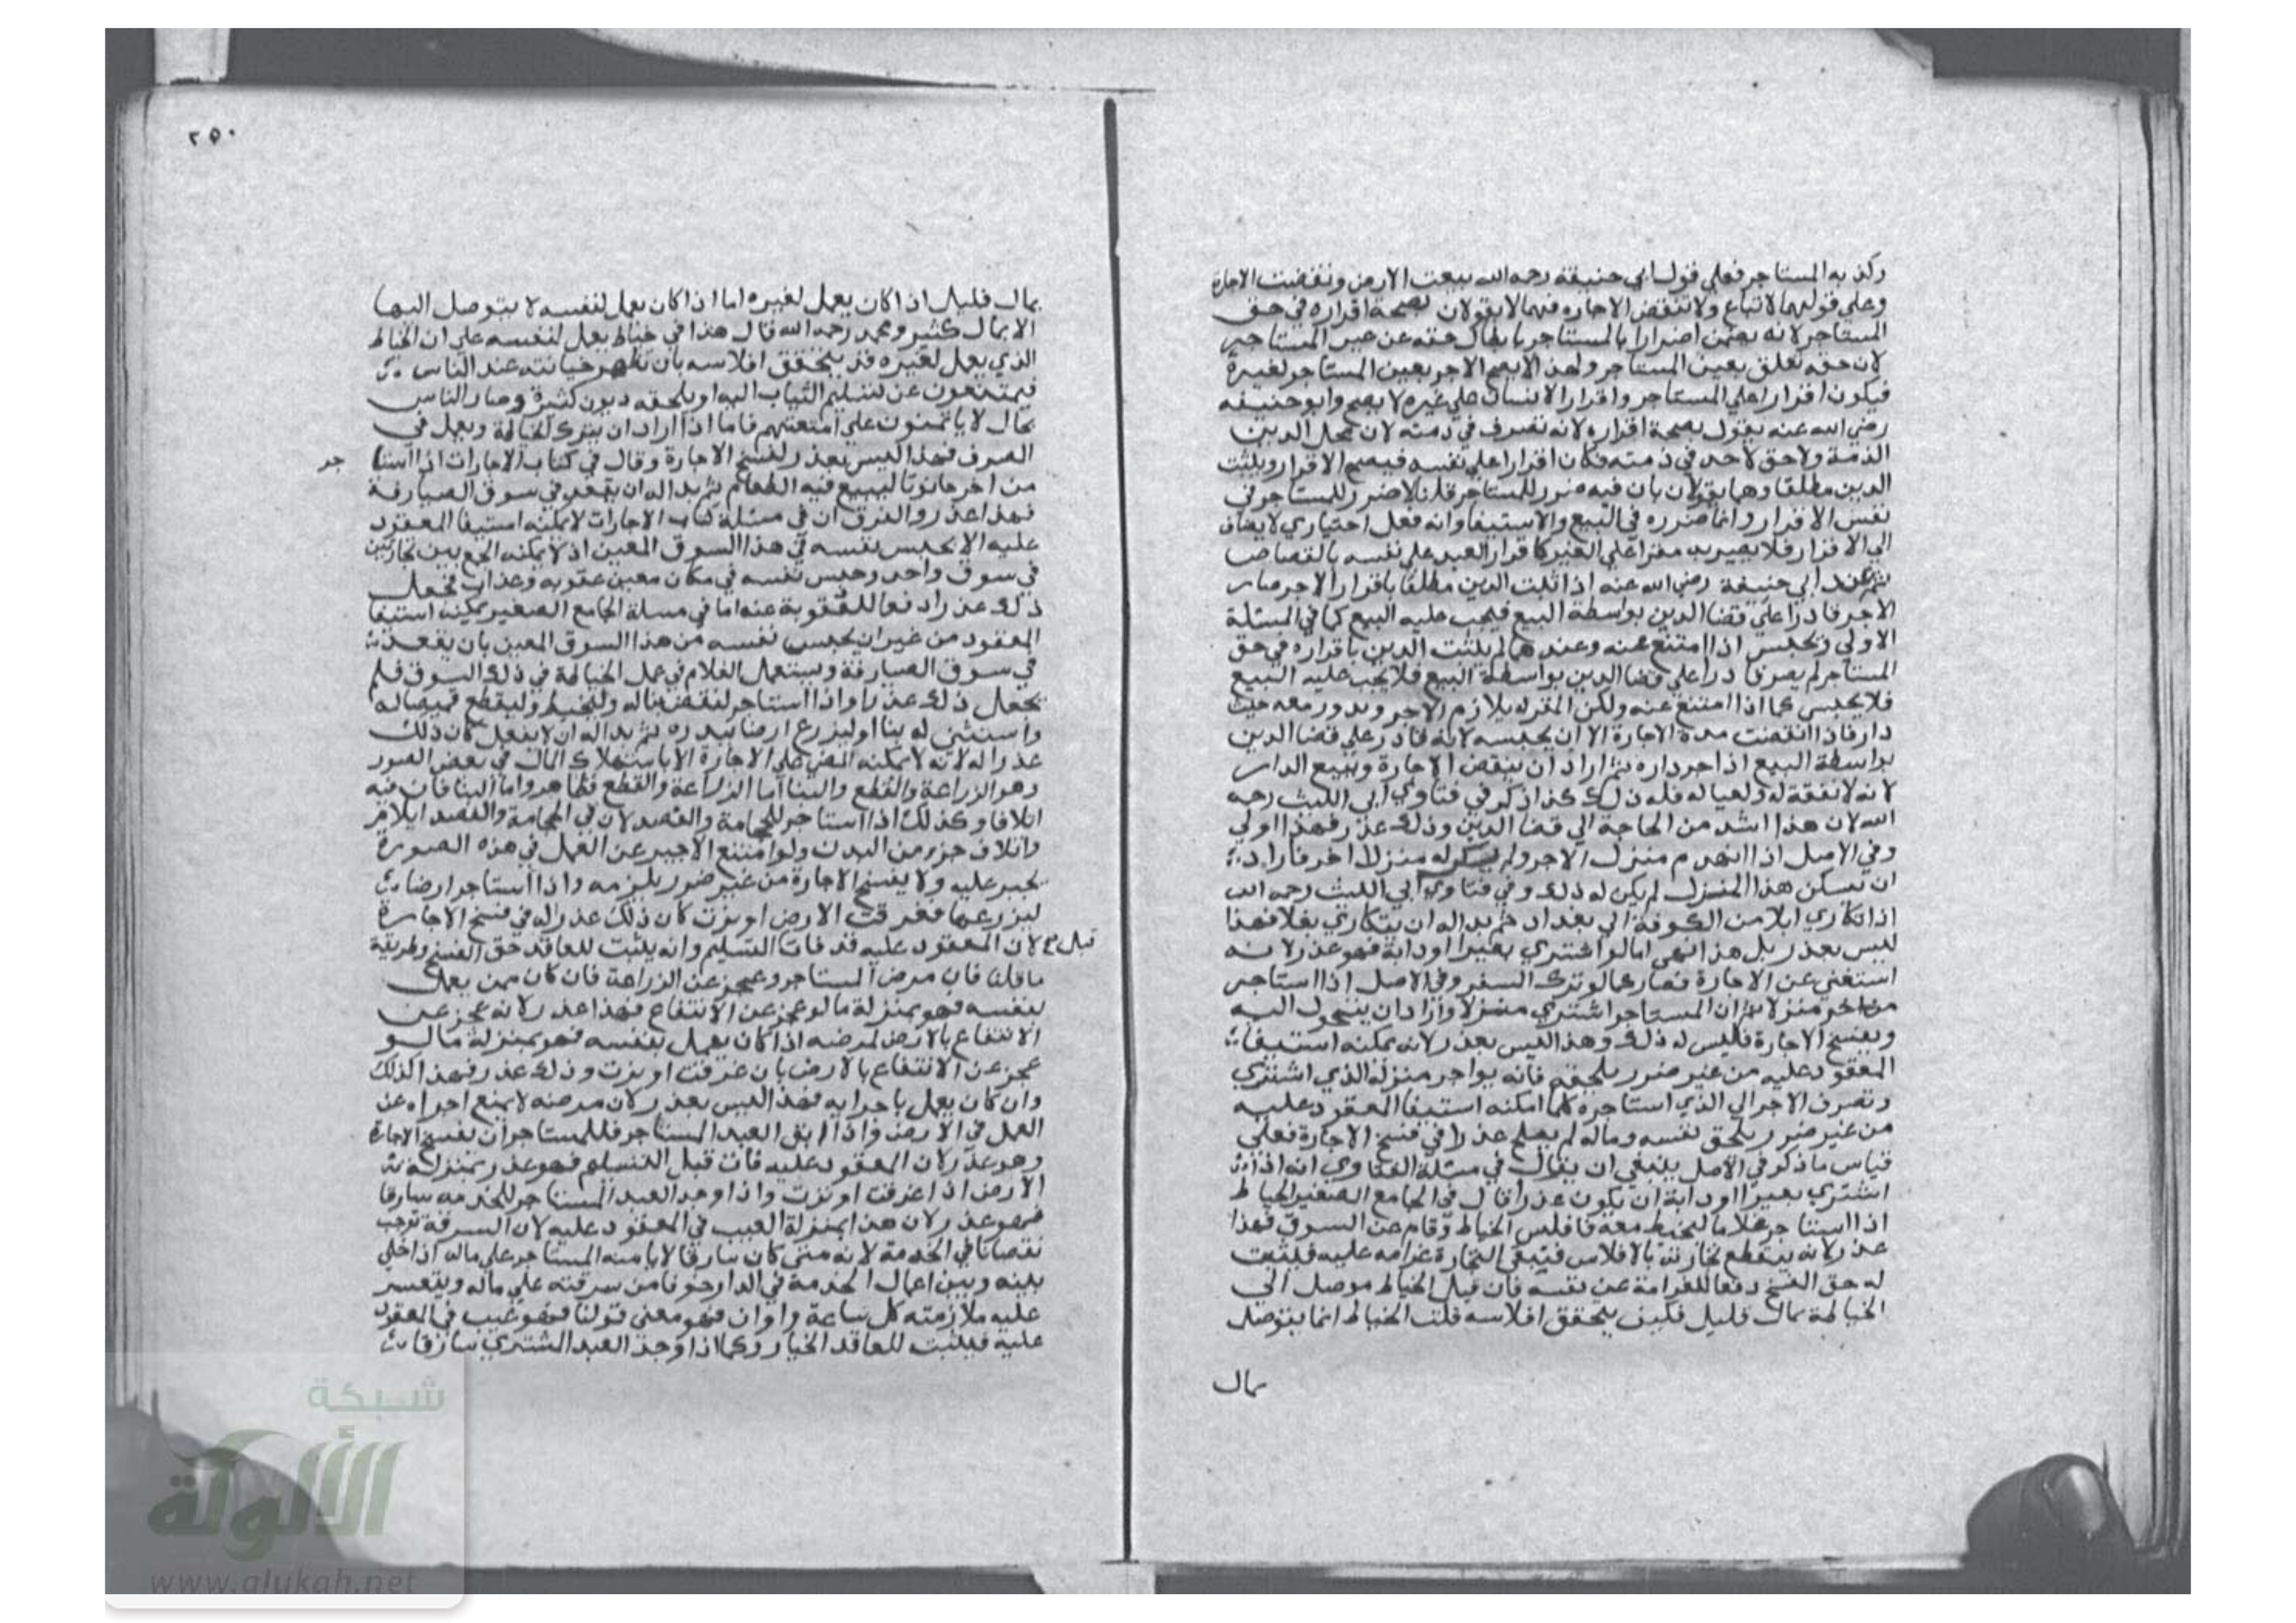 وكذبه المستاجر فعلي قول ابي حنيفة رحمه الله بيعت الارض ونقضت الاجارة
وعلي قولهما لا تباع ولا تنقض الاجاره فهما لا يقولان بصحة اقراره في حق
المستاجر لانه يضمن اضرارا بالمستاجر بابطال حقه عن عين المستاجر
لان حقه تعلق بعين المستاجر ولهذا لا يصح الاجر بعين المستاجر لغيرة
فيكون اقرارا علي المستاجر واقرار الانسان علي غيره لا يصح وابو حنيفه
رضي الله عنه يقول بصحة اقراره لانه تصرف في ذمته لان محل الدين
الذمة ولا حق لاحد في ذمته فكان اقرارا علي نفسه فيصح الاقرار ويثبت
الدين مطلقا وهما يقولان بان فيه ضرر للمستاجر قلنا لا ضرر للمستاجر في
نفس الاقرار وانما ضرره في البيع والاستيفا وانه فعل اختياري لا يضاف
الي الاقرار فلا يصير به مقرا علي الغير كاقرار العبد علي نفسه بالقصاص
ثم عند ابي حنيفة رضي الله عنه اذا ثبت الدين مطلقا باقرار الاجر صار
الاجر قادرا علي قضا الدين بواسطة البيع فيجب عليه البيع كما في المسئلة
الاولي ويحبس اذا امتنع عنه وعندهما لم يثبت الدين باقراره في حق
المستاجر لم يصر قادرا علي قضا الدين بواسطة البيع فلا يجب عليه البيع
فلا يحبس كما اذا امتنع عنه ولكن المقر له يلازم الاجر ويدور معه حيث
دار فاذا انقضت مدة الاجارة الان يحبسه لانه قادر علي قضا الدين
بواسطة البيع اذا اجر داره ثم اراد ان ينقض الاجارة ويبيع الدار
لانه لا نفقة له ولعياله فله ذلك كذا ذكر في فتاوي ابي الليث رحمه
الله لان هذا اشد من الحاجة الي قضا الدين وذلك عذر فهذا اولي
وفي الاصل اذا انهدم منزل الاجر ولم يكن له منزلا اخر فاراد
ان يسكن هذا المنزل لم يكن له ذلك وفي فتاوي ابي الليث رحمه الله
اذا تكاري ابلا من الكوفة الي بغداد ثم بدا له ان يتكاري بغلا فهذا
ليس بعذر بل هذا تمني اما لو اشتري بعيرا او دابة فهو عذر لانه
استغني عن الاجارة فصار كما لو ترك السفر وفي الاصل اذا استاجر
من اخر منزلا ثم ان المستاجر اشتري منزلا واراد ان يتحول اليه
ويفسخ الاجارة فليس له ذلك وهذا ليس بعذر لانه يمكنه استيفا
المعقود عليه من غير ضرر يلحقه فانه يواجر منزله الذي اشتري
وتصرف الاجر الي الذي استاجره كلما امكنه استيفا المعقود عليه
من غير ضرر يلحق نفسه وماله لم يصلح عذرا في فسخ الاجارة فعلي
قياس ما ذكر في الاصل ينبغي ان يقال في مسئلة الفتاوي انه اذا
اشتري بعيرا او دابة ان يكون عذرا قال في الجامع الصغير الخياط
اذا استاجر غلاما ليخيط معه فافلس الخياط وقام من السوق فهذا
عذر لانه ينقطع تجارته بالافلاس فتبقي التجارة غرامه عليه فيثبت
له حق الفسخ دفعا للغرامة عن نفسه فان قيل الخياط موصل الي
الخياطة بمال قليل فكيف يتحقق افلاسه قلت الخياط انما يتوصل
بمال
٢٥٠
بمال قليل اذا كان يعمل لغيره اما اذا كان يعمل لنفسه لا يتوصل اليها
الا بمال كثير ومحمد رحمه الله قال هذا في خياط يعمل لنفسه علي ان الخياط
الذي يعمل لغيره قد يتحقق افلاسه بان تظهر خيانته عند الناس
فيمتنعون عن تسليم الثياب اليه او يلحقه ديون كثيرة وصار الناس
بحال لا ياتمنون علي امتعتهم فاما اذا اراد ان يترك الخياطة ويعمل في
الصرف فهذا ليس بعذر لفسخ الاجارة وقال في كتاب الاجارات اذا استا جر
من اخر حانوتا ليبيع فيه الطعام ثم بدا له ان يقعد في سوق الصيارفة
فهذا عذر والفرق ان في مسئلة كتاب الاجارات لا يمكنه استيفا المعقود
عليه الا بحبس نفسه في هذا السوق المعين اذ لا يمكنه الجمع بين تجارتين
في سوق واحد وحبس نفسه في مكان معين عقوبه وعذاب فجعل
ذلك عذرا دفعا للعقوبة عنه اما في مسلة الجامع الصغير يمكنه استيفا
المعقود من غير ان يحبس نفسه من هذا السوق المعين بان يقعد
في سوق الصيارفة ويستعمل الغلام في عمل الخياطة في ذلك السوق فلم
يجعل ذلك عذرا واذا استاجر لنقض بناله وليخيط وليقطع قميصا له
واستثني له بنا او ليزرع ارضا ببدره ثم بدا له ان لا يفعل كان ذلك
عذرا له لانه لا يمكنه المضي علي الاجارة الا باستهلاك المال في بعض الصور
وهو الزراعة والقطع والبنا اما الزراعة والقطع فظاهر واما البنا فان فيه
اتلافا وكذلك اذا استاجر للحجامة والفصد لان في الحجامة والفصد ايلام
واتلاف جزء من البدن ولو امتنع الاجير عن العمل في هذه الصورة
يجبر عليه ولا يفسخ الاجارة من غير ضرر يلزمه واذا استاجر ارضا
ليزرعها فغرقت الارض او نزت كان ذلك عذرا له في فسخ الاجارة
لان المعقود عليه قد فات قبل التسليم وانه يثبت للعاقد حق الفسخ وطريقة
ما قلنا فان مرض المستاجر وعجز عن الزراعة فان كان ممن يعمل
بنفسه فهو بمنزلة ما لو عجز عن الانتفاع فهذا عذر لانه عجز عن
الانتفاع بالارض لمرضه اذا كان يعمل بنفسه فهو بمنزلة ما لو
عجز عن الانتفاع بالارض بان غرقت او نزت وذلك عذر فهذا كذلك
وان كان يعمل باجرايه فهذا ليس بعذر لان مرضه لا يمنع اجراه عن
العمل في الارض واذا ابق العبد المستاجر فللمستاجر ان يفسخ الاجارة
وهو عذر لان المعقود عليه فات قبل التسليم فهو عذر بمنزلة
الارض اذا غرقت او نزت واذا وجد العبد المستاجر للخدمه سارقا
فهو عذر لان هذا بمنزلة العيب في المعقود عليه لان السرقة توجب
نقصانا في الخدمة لانه متي كان سارقا لا يامنه المستاجر علي ماله اذا خلي
بينه وبين اعمال الخدمة في الدار خوفا من سرقته علي ماله ويتعسر
عليه ملازمته كل ساعة واوان فهو معني قولنا فهو عيب في العقود
عليه فيثبت للعاقد الخيار وكما اذا وجد العبد المشتري سارقا
شبكة
الألوكة
www.alukah.net